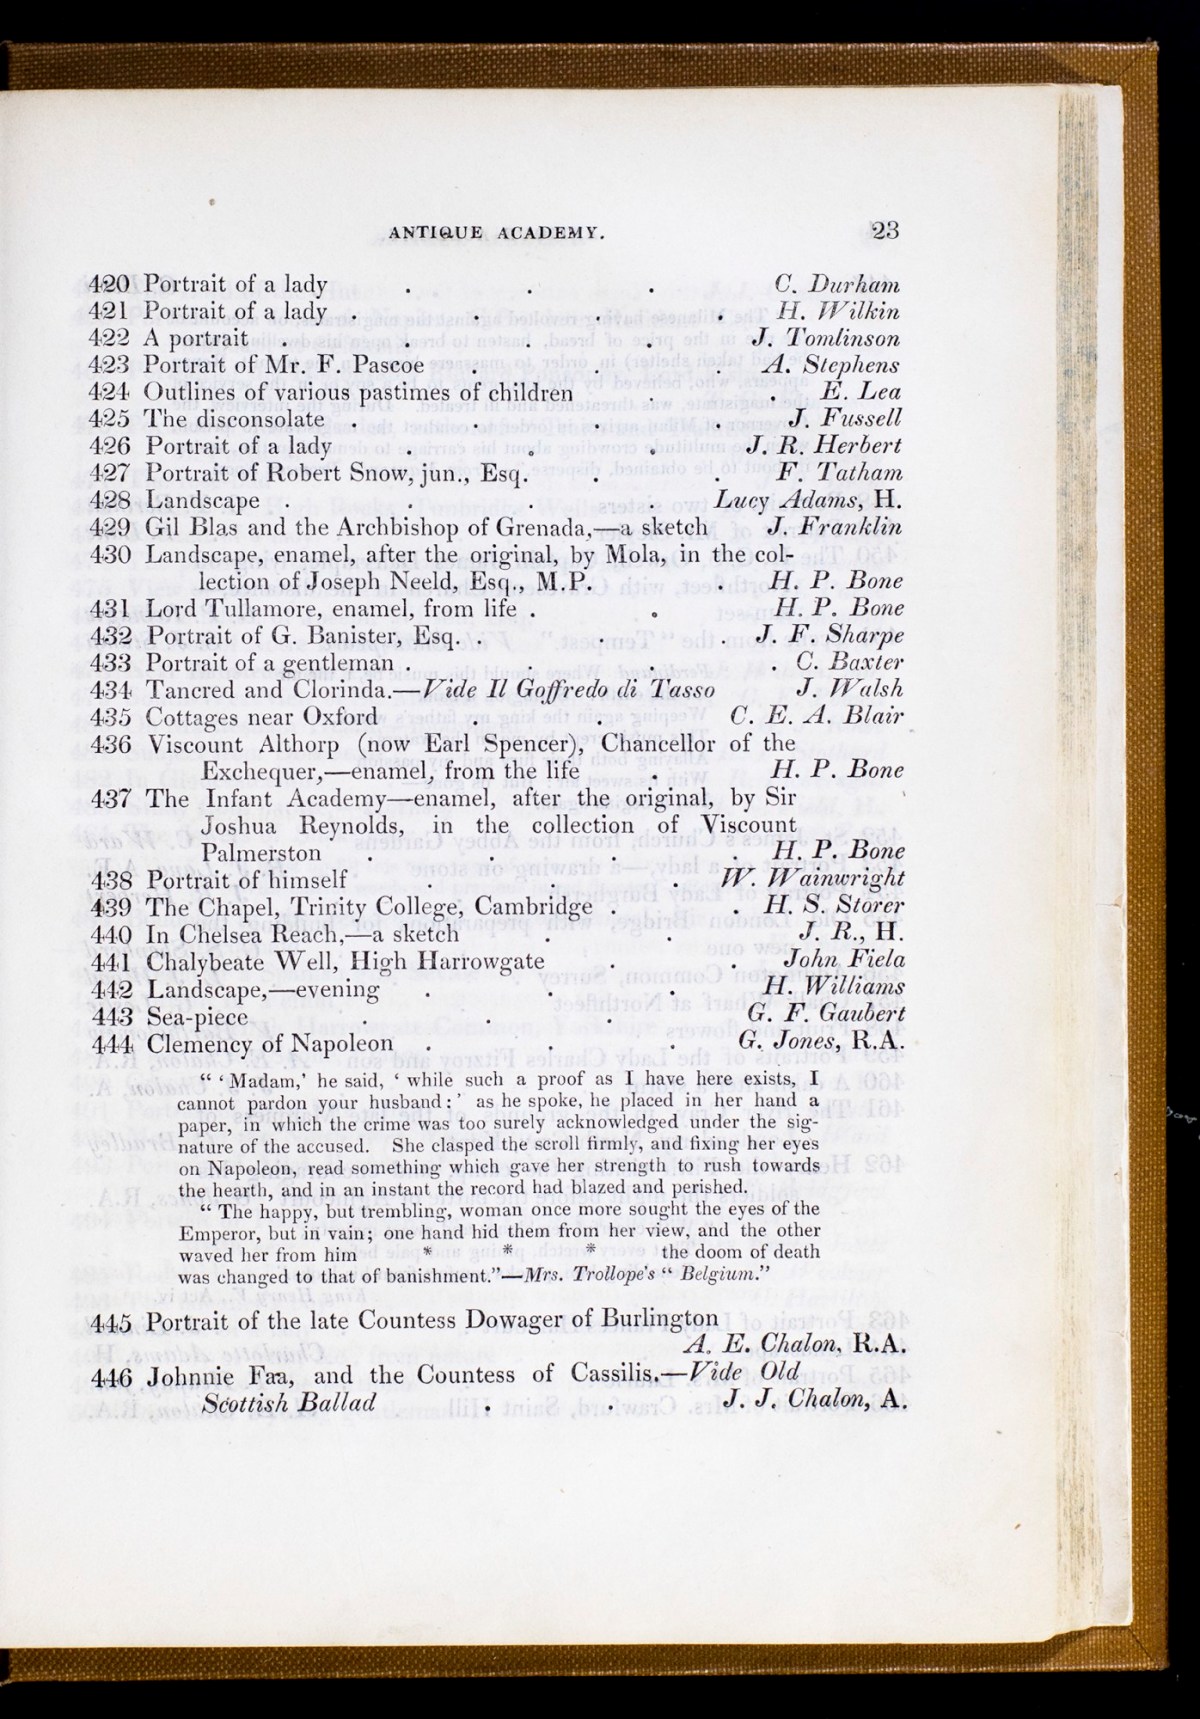 ANTIQUE ACADEMY. 23
420 Portrait of a lady . . . C. Durham
421 Portrait of a lady . . . . H. Wilkin
422 A portrait . . . . J. Tomlinson
423 Portrait of Mr. F. Pascoe . . . A. Stephens
424 Outlines of various pastimes of children . . E. Lea
425 The disconsolate . . . . J. Fussell
426 Portrait of a lady . . . J. R. Herbert
427 Portrait of Robert Snow, jun., Esq. . . F. Tatham
428 Landscape . . . . Lucy Adams, H.
429 Gil Blas and the Archbishop of Grenada,—a sketch J. Franklin
430 Landscape, enamel, after the original, by Mola, in the col-
lection of Joseph Neeld, Esq., M.P. . H. P. Bone
431 Lord Tullamore, enamel, from life . . H. P. Bone
432 Portrait of G. Banister, Esq. . . . J. F. Sharpe
433 Portrait of a gentleman . . . . C. Baxter
434 Tancred and Clorinda.—Vide Il Goffredo di Tasso J. Walsh
435 Cottages near Oxford . . C. E. A. Blair
436 Viscount Althorp (now Earl Spencer), Chancellor of the
Exchequer,—enamel, from the life . H. P. Bone
437 The Infant Academy—enamel, after the original, by Sir
Joshua Reynolds, in the collection of Viscount
Palmerston . . . . H. P. Bone
438 Portrait of himself . . . W. Wainwright
439 The Chapel, Trinity College, Cambridge . . H. S. Storer
440 In Chelsea Reach,—a sketch . . J. R., H.
441 Chalybeate Well, High Harrowgate . . John Fiela
442 Landscape,—evening . . . H. Williams
443 Sea-piece . . . G. F. Gaubert
444 Clemency of Napoleon . . . G. Jones, R.A.
“ ‘ Madam,’ he said, ‘ while such a proof as I have here exists, I
cannot pardon your husband:’ as he spoke, he placed in her hand a
paper, in which the crime was too surely acknowledged under the sig-
nature of the accused. She clasped the scroll firmly, and fixing her eyes
on Napoleon, read something which gave her strength to rush towards
the hearth, and in an instant the record had blazed and perished.
“ The happy, but trembling, woman once more sought the eyes of the
Emperor, but in vain; one hand hid them from her view, and the other
waved her from him * * * the doom of death
was changed to that of banishment.”—Mrs. Trollope's “ Belgium.”
445 Portrait of the late Countess Dowager of Burlington
A. E. Chalon, R.A.
446 Johnnie Faa, and the Countess of Cassilis.—Vide Old
Scottish Ballad . . J. J. Chalon, A.